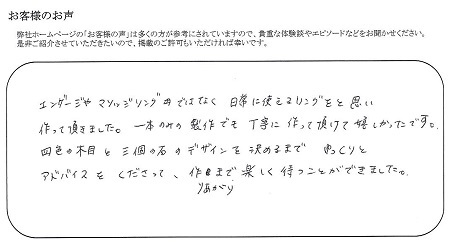 お客様のお声
弊社ホームページの「お客様の声」は多くの方が参考にされていますので、貴重な体験談やエピソードなどをお聞かせください。
是非ご紹介させていただきたいので、掲載のご許可もいただければ幸いです。
エンゲージや マリッジリング用ではなく 日常に使えるリングをと思い
作って頂きました。一本のみの製作でも 丁寧に作って頂けて嬉しかったです。
四色の木目と三個の石のデザインを決めるまで ゆっくりと
アドバイスをくださって、作日まで楽しく待つことができました。
りあがり